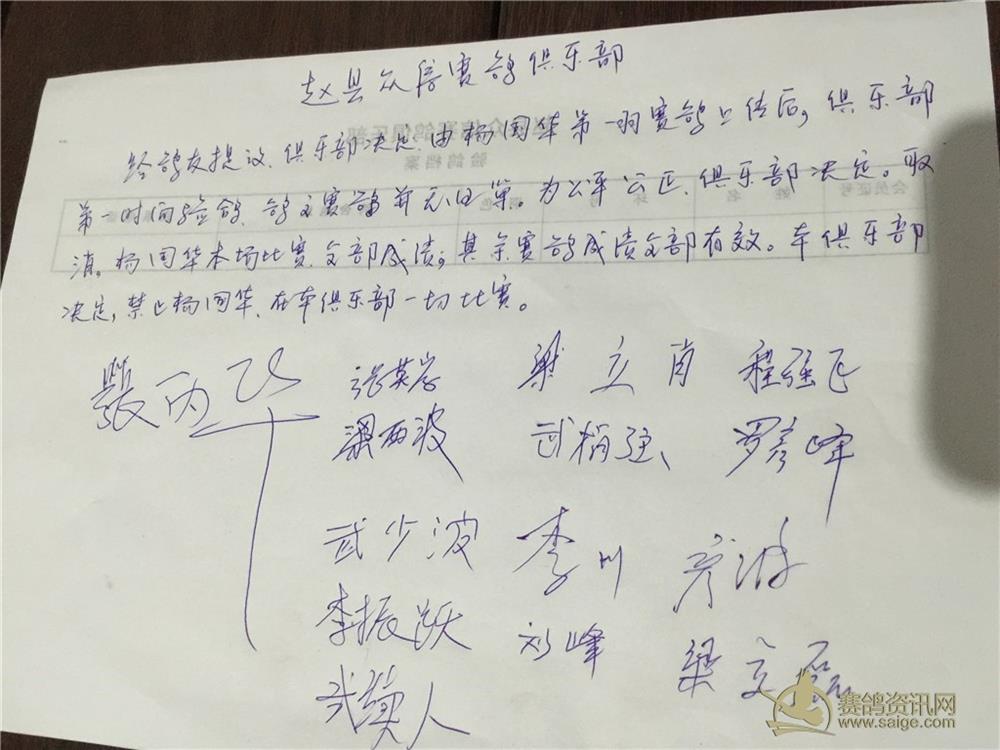 赵县众信赛鸽俱乐部
经鸽友提议、俱乐部决定、由杨国华第一羽赛鸽上传后，俱乐部
第一时间验鸽、鸽主赛鸽并无归巢。为公平公正、俱乐部决定。取
消。杨国华本场比赛、全部成绩；其余赛鸽成绩全部有效。本俱乐部
决定，禁止杨国华、在本俱乐部一切比赛。
张英岩 梁立肖 程强飞
梁西波 武栓强、罗彦峰
武少波 李川 彦游
李振跃 刘峰 梁文磊
赛鸽资讯网
www.saige.com
验鸽档案
会员证号